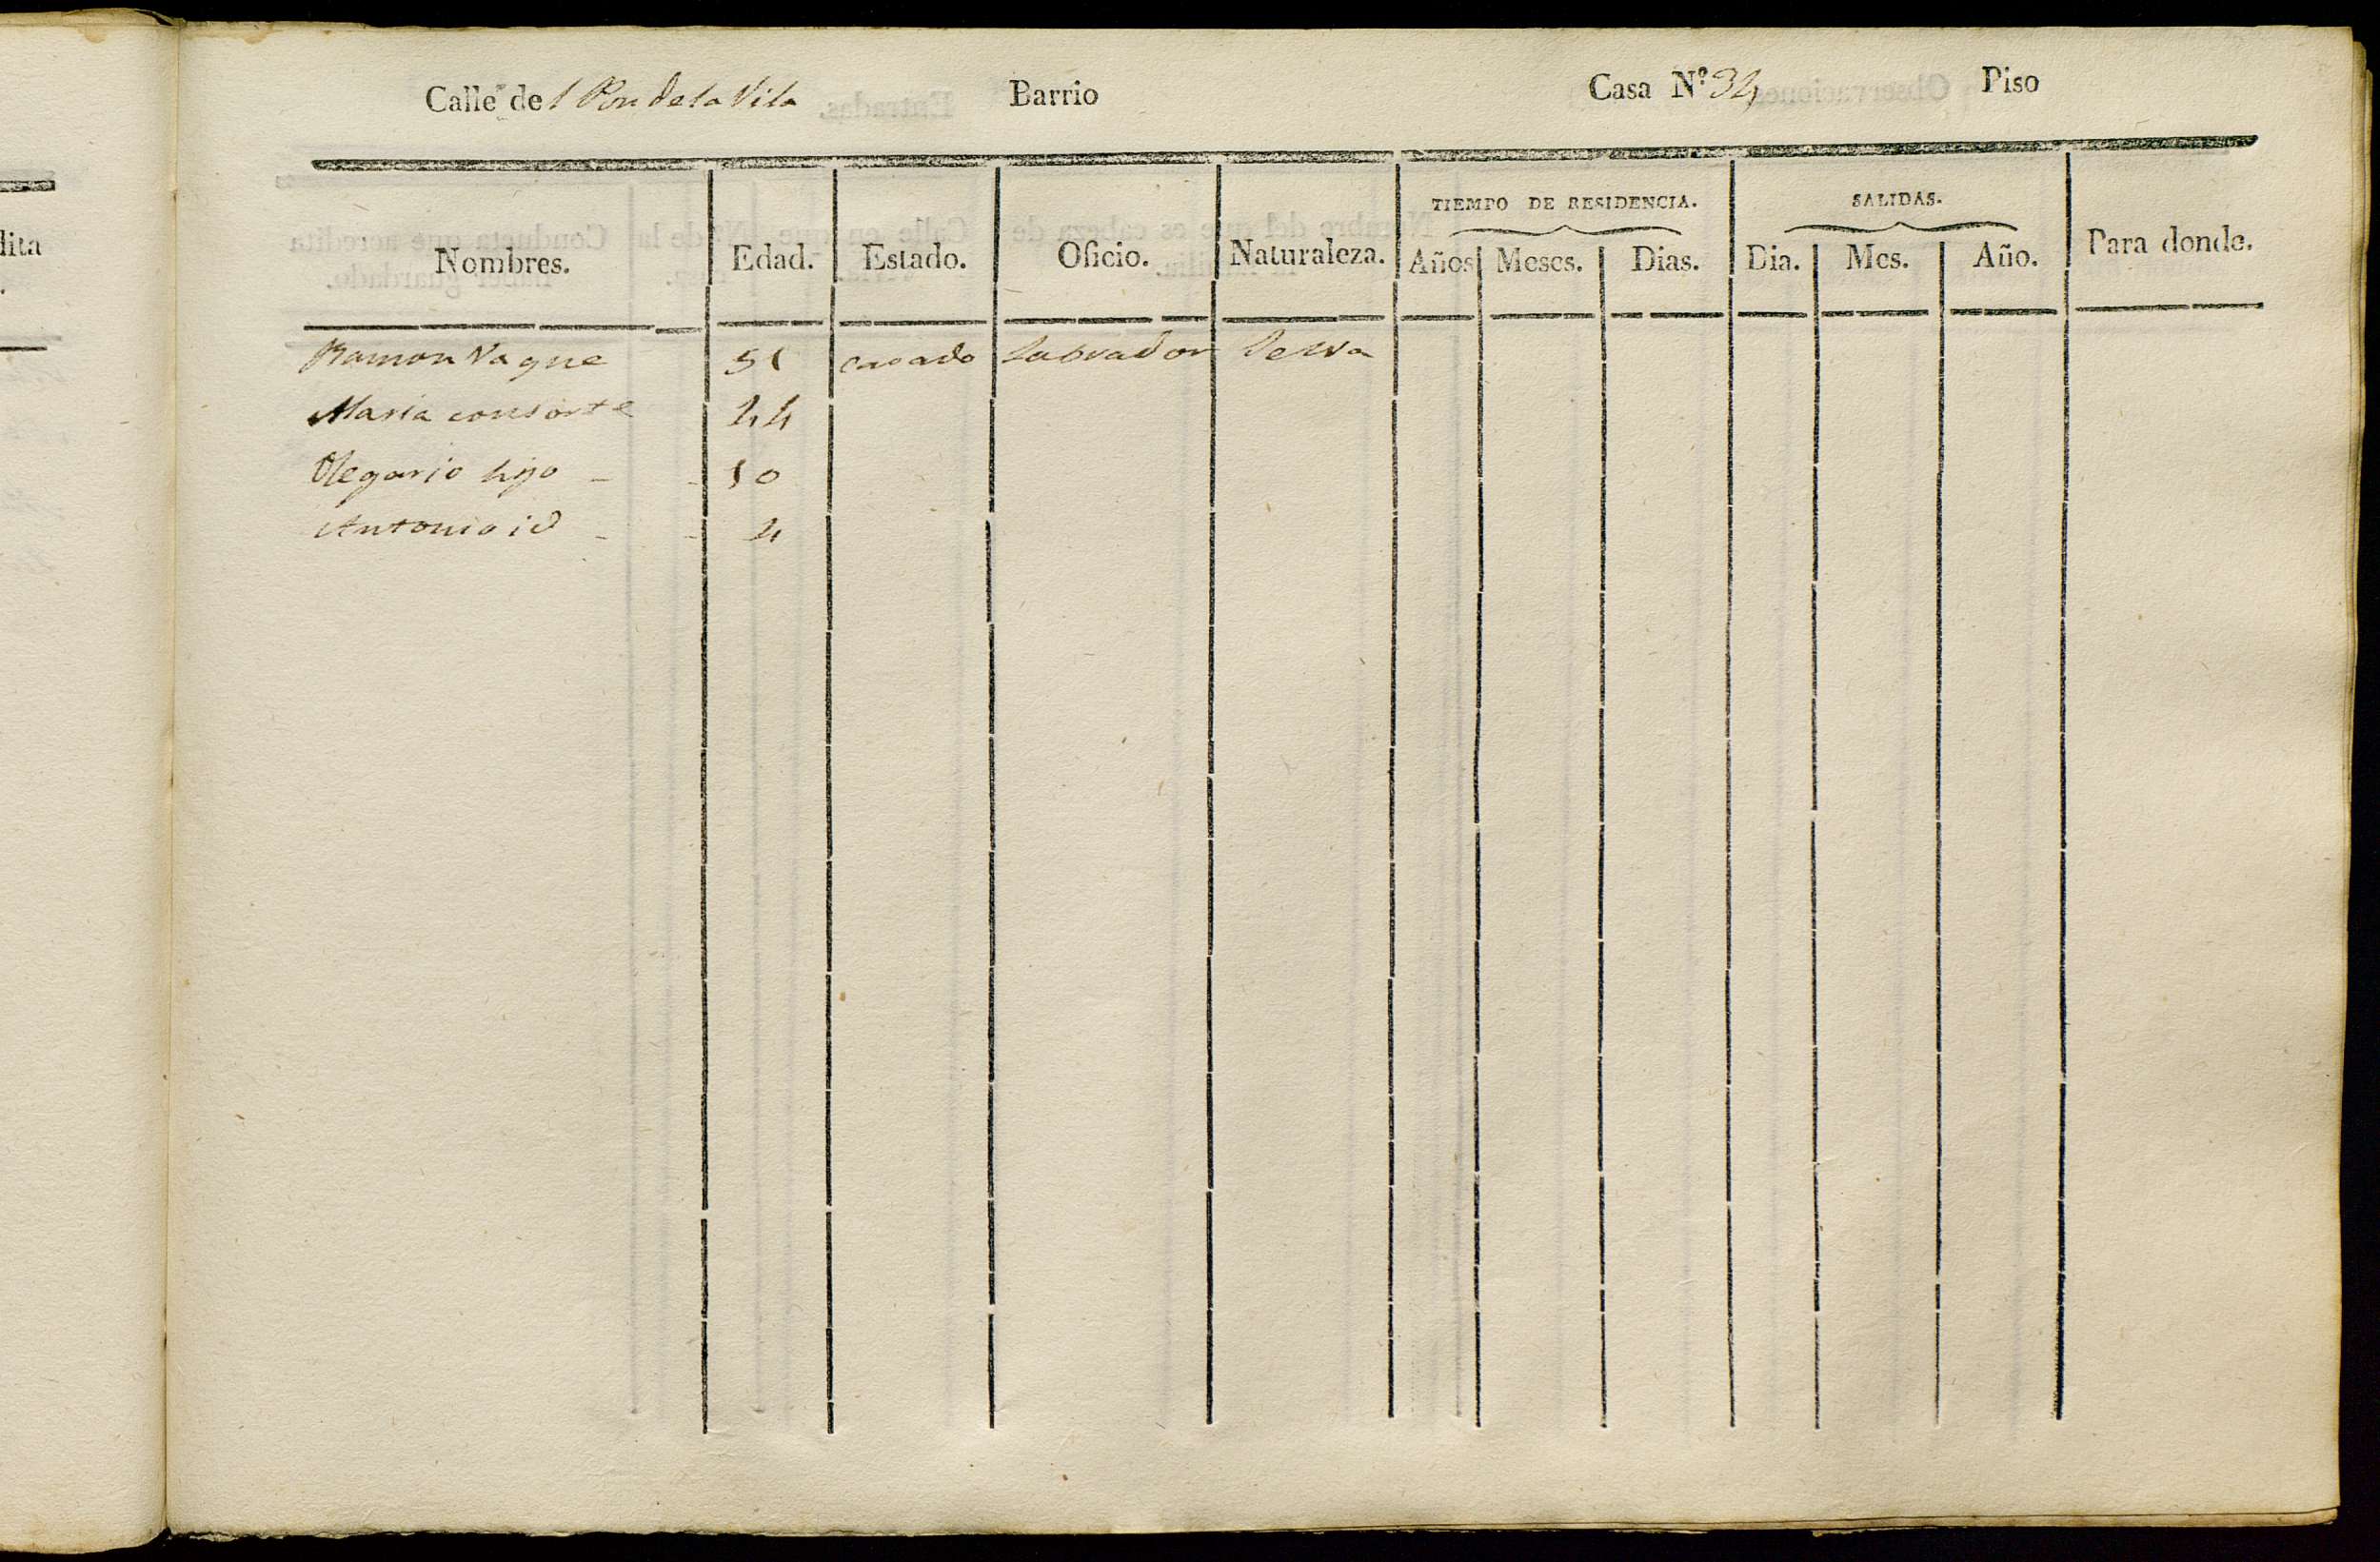 dita
Calle del Pou de la Vila Barrio Casa N.º 34 Piso
TIEMPO DE RESIDENCIA. SALIDAS.
Nombres. Edad. Estado. Oficio. Naturaleza. Años Meses. Dias. Dia. Mes. Año. Para donde.
Ramon Vaque 51 casado Labrador Selva
Maria consorte 44
Olegario hijo - - 10
Antonio id - - 4